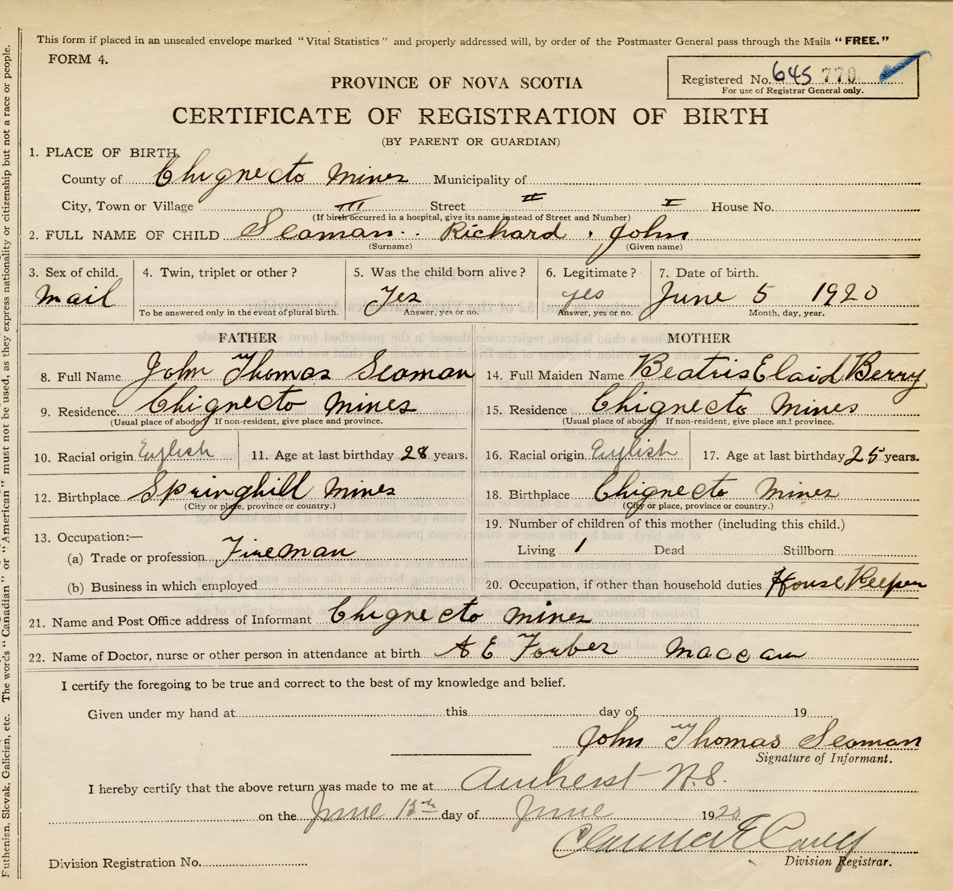 This form if placed in an unsealed envelope marked "Vital Statistics" and properly addressed will, by order of the Postmaster General pass through the Mails "FREE."
FORM 4.
PROVINCE OF NOVA SCOTIA
Registered No. 645 770
For use of Registrar General only.
CERTIFICATE OF REGISTRATION OF BIRTH
(BY PARENT OR GUARDIAN)
1. PLACE OF BIRTH
County of Chignecto Mines Municipality of
City, Town or Village III Street II I House No.
(If birth occurred in a hospital, give its name instead of Street and Number)
2. FULL NAME OF CHILD Seaman Richard John
(Surname) (Given name)
3. Sex of child. 4. Twin, triplet or other? 5. Was the child born alive? 6. Legitimate? 7. Date of birth.
Mail Yes yes June 5 1920
To be answered only in the event of plural birth. Answer, yes or no. Answer, yes or no. Month, day, year.
FATHER MOTHER
8. Full Name John Thomas Seaman 14. Full Maiden Name Beatris Elaid Berry
9. Residence Chignecto Mines 15. Residence Chignecto Mines
(Usual place of abode) If non-resident, give place and province. (Usual place of abode) If non-resident, give place and province.
10. Racial origin English 11. Age at last birthday 28 years. 16. Racial origin English 17. Age at last birthday 25 years.
12. Birthplace Springhill Mines 18. Birthplace Chignecto Mines
(City or place, province or country.) (City or place, province or country.)
13. Occupation:— 19. Number of children of this mother (including this child.)
(a) Trade or profession Fireman Living 1 Dead Stillborn
(b) Business in which employed 20. Occupation, if other than household duties House Keeper
21. Name and Post Office address of Informant Chignecto Mines
22. Name of Doctor, nurse or other person in attendance at birth A E Forber Maccan
I certify the foregoing to be true and correct to the best of my knowledge and belief.
Given under my hand at this day of 19
John Thomas Seaman
Signature of Informant.
I hereby certify that the above return was made to me at Amherst N.S.
on the June 15th day of June 1920
Division Registration No. Division Registrar.
Ruthenian, Slovak, Galician, etc. The words "Canadian" or "American" must not be used, as they express nationality or citizenship but not a race or people.